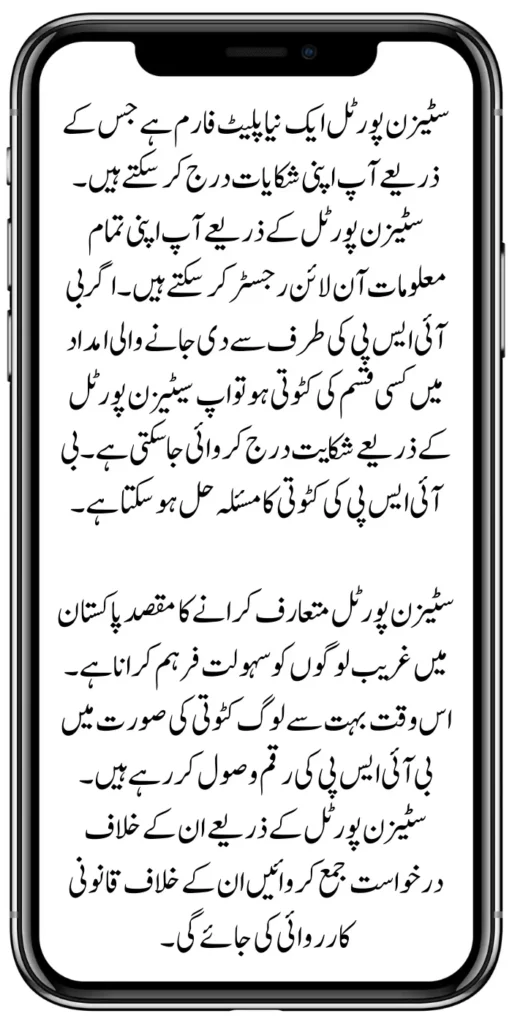 سٹیزن پورٹل ایک نیا پلیٹ فارم ہے جس کے
ذریعے آپ اپنی شکایات درج کر سکتے ہیں۔
سٹیزن پورٹل کے ذریعے آپ اپنی تمام
معلومات آن لائن رجسٹر کر سکتے ہیں۔ اگر بی
آئی ایس پی کی طرف سے دی جانے والی امداد
میں کسی قسم کی کٹوتی ہو تو اپ سیٹیزن پورٹل
کے ذریعے شکایت درج کروائی جا سکتی ہے۔ بی
آئی ایس پی کی کٹوتی کا مسئلہ حل ہو سکتا ہے۔
سٹیزن پورٹل متعارف کرانے کا مقصد پاکستان
میں غریب لوگوں کو سہولت فرہم کرانا ہے۔
اس وقت بہت سے لوگ کٹوتی کی صورت میں
بی آئی ایس پی کی رقم وصول کر رہے ہیں۔
سٹیزن پورٹل کے ذریعے ان کے خلاف
درخواست جمع کروائیں ان کے خلاف قانونی
کارروائی کی جائے گی۔